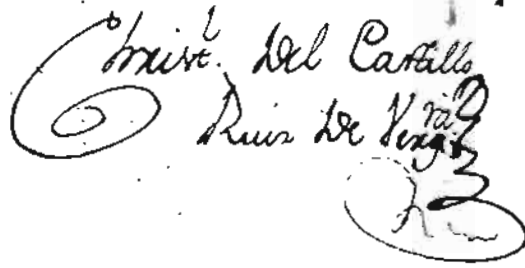 Christ.l Del Castillo
Ruiz De Verg.ra